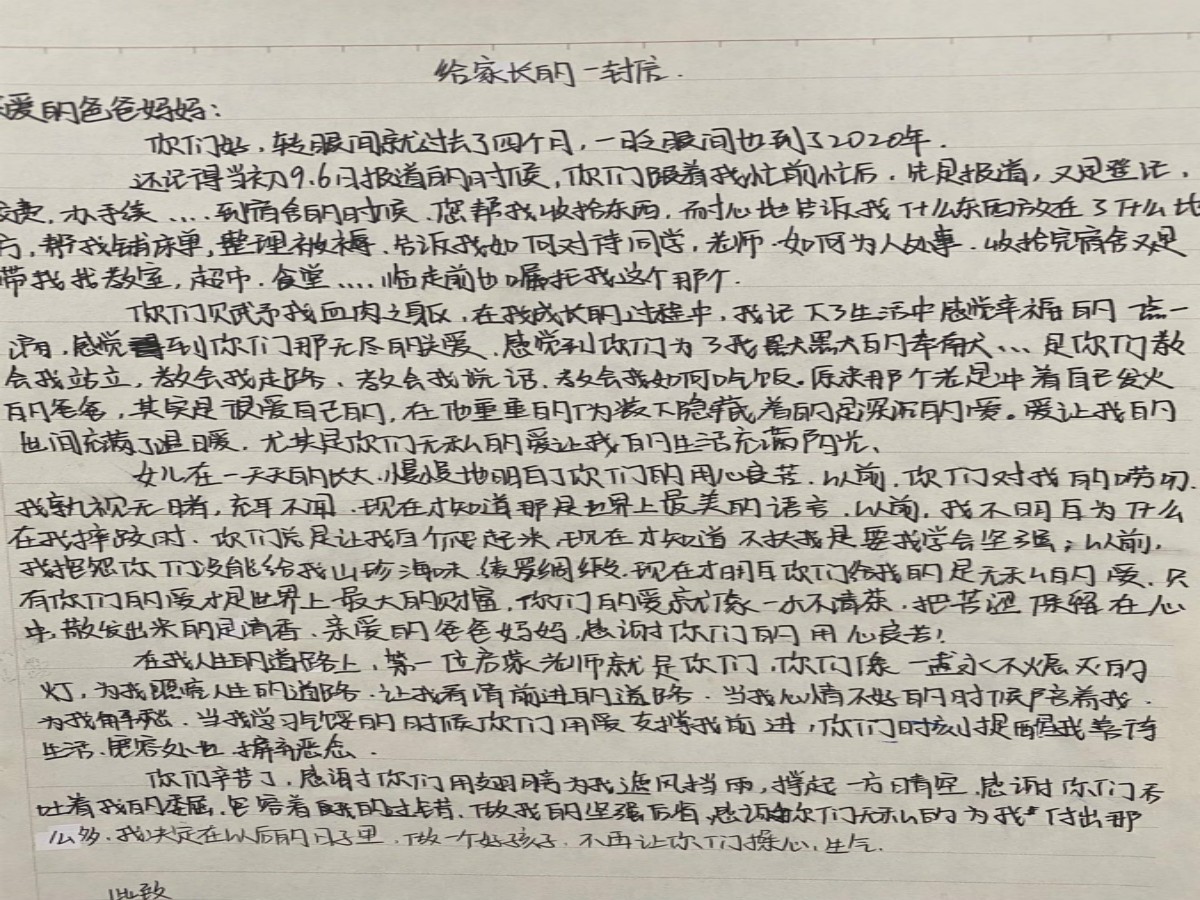 给家长的一封信.
爱的爸爸妈妈:
你们好, 转眼间就过去了四个月, 一眨眼间也到了2020年.
还记得当初9.6日报道的时候, 你们跟着我忙前忙后. 先是报道, 又是登记,
费, 办手续....到宿舍的时候. 您帮我收拾东西, 耐心地告诉我什么东西放在了什么地
方, 帮我铺床单, 整理被褥. 告诉我如何对待同学, 老师. 如何为人处事. 收拾完宿舍又是
带我找教室, 超市. 食堂....临走前也嘱托我这个那个.
你们赋予我血肉之躯, 在我成长的过程中, 我记下了生活中感觉幸福的点一
滴, 感觉到你们那无尽的关爱. 感觉到你们为了我黑天黑夜的奔... 是你们教
会我站立, 教会我走路、教会我说话. 教会我如何吃饭。原来那个老是冲着自己发火
的爸爸, 其实是很爱自己的, 在他重重的伪装下隐藏着的是深沉的爱。爱让我的
世间充满了温暖. 尤其是你们无私的爱让我的生活充满阳光、
女儿在一天天的长大, 慢慢地明白了你们的用心良苦. 以前, 你们对我的唠叨.
我熟视无睹, 充耳不闻. 现在才知道那是世界上最美的语言. 以前, 我不明白为什么
在我摔跤时. 你们总是让我自个爬起来, 现在才知道不扶我是要我学会坚强; 以前,
我抱怨你们没能给我山珍海味. 绫罗绸缎. 现在才明白你们给我的是无私的爱. 只
有你们的爱才是世界上最大的财富, 你们的爱就像一水不清茶. 把苦涩保留在心
中, 散发出来的是清香. 亲爱的爸爸妈妈, 感谢你们的用心良苦!
在我人生的道路上, 第一位启蒙老师就是你们, 你们像一盏永不熄灭的
灯, 为我照亮人生的道路. 让我看清前进的道路. 当我心情不好的时候陪着我.
为我解愁. 当我学习气馁的时候你们用爱支撑我前进, 你们时刻提醒我善待
生活. 宽容处世 摒弃恶念.
你们辛苦了, 感谢你们用翅膀为我遮风挡雨, 撑起一方晴空. 感谢你们承
吐着我的委屈. 包容着我的过错. 做我的坚强后盾, 感谢你们无私的为我付出那
么多. 我决定在以后的日子里. 做一个好孩子. 不再让你们操心, 生气.
此致